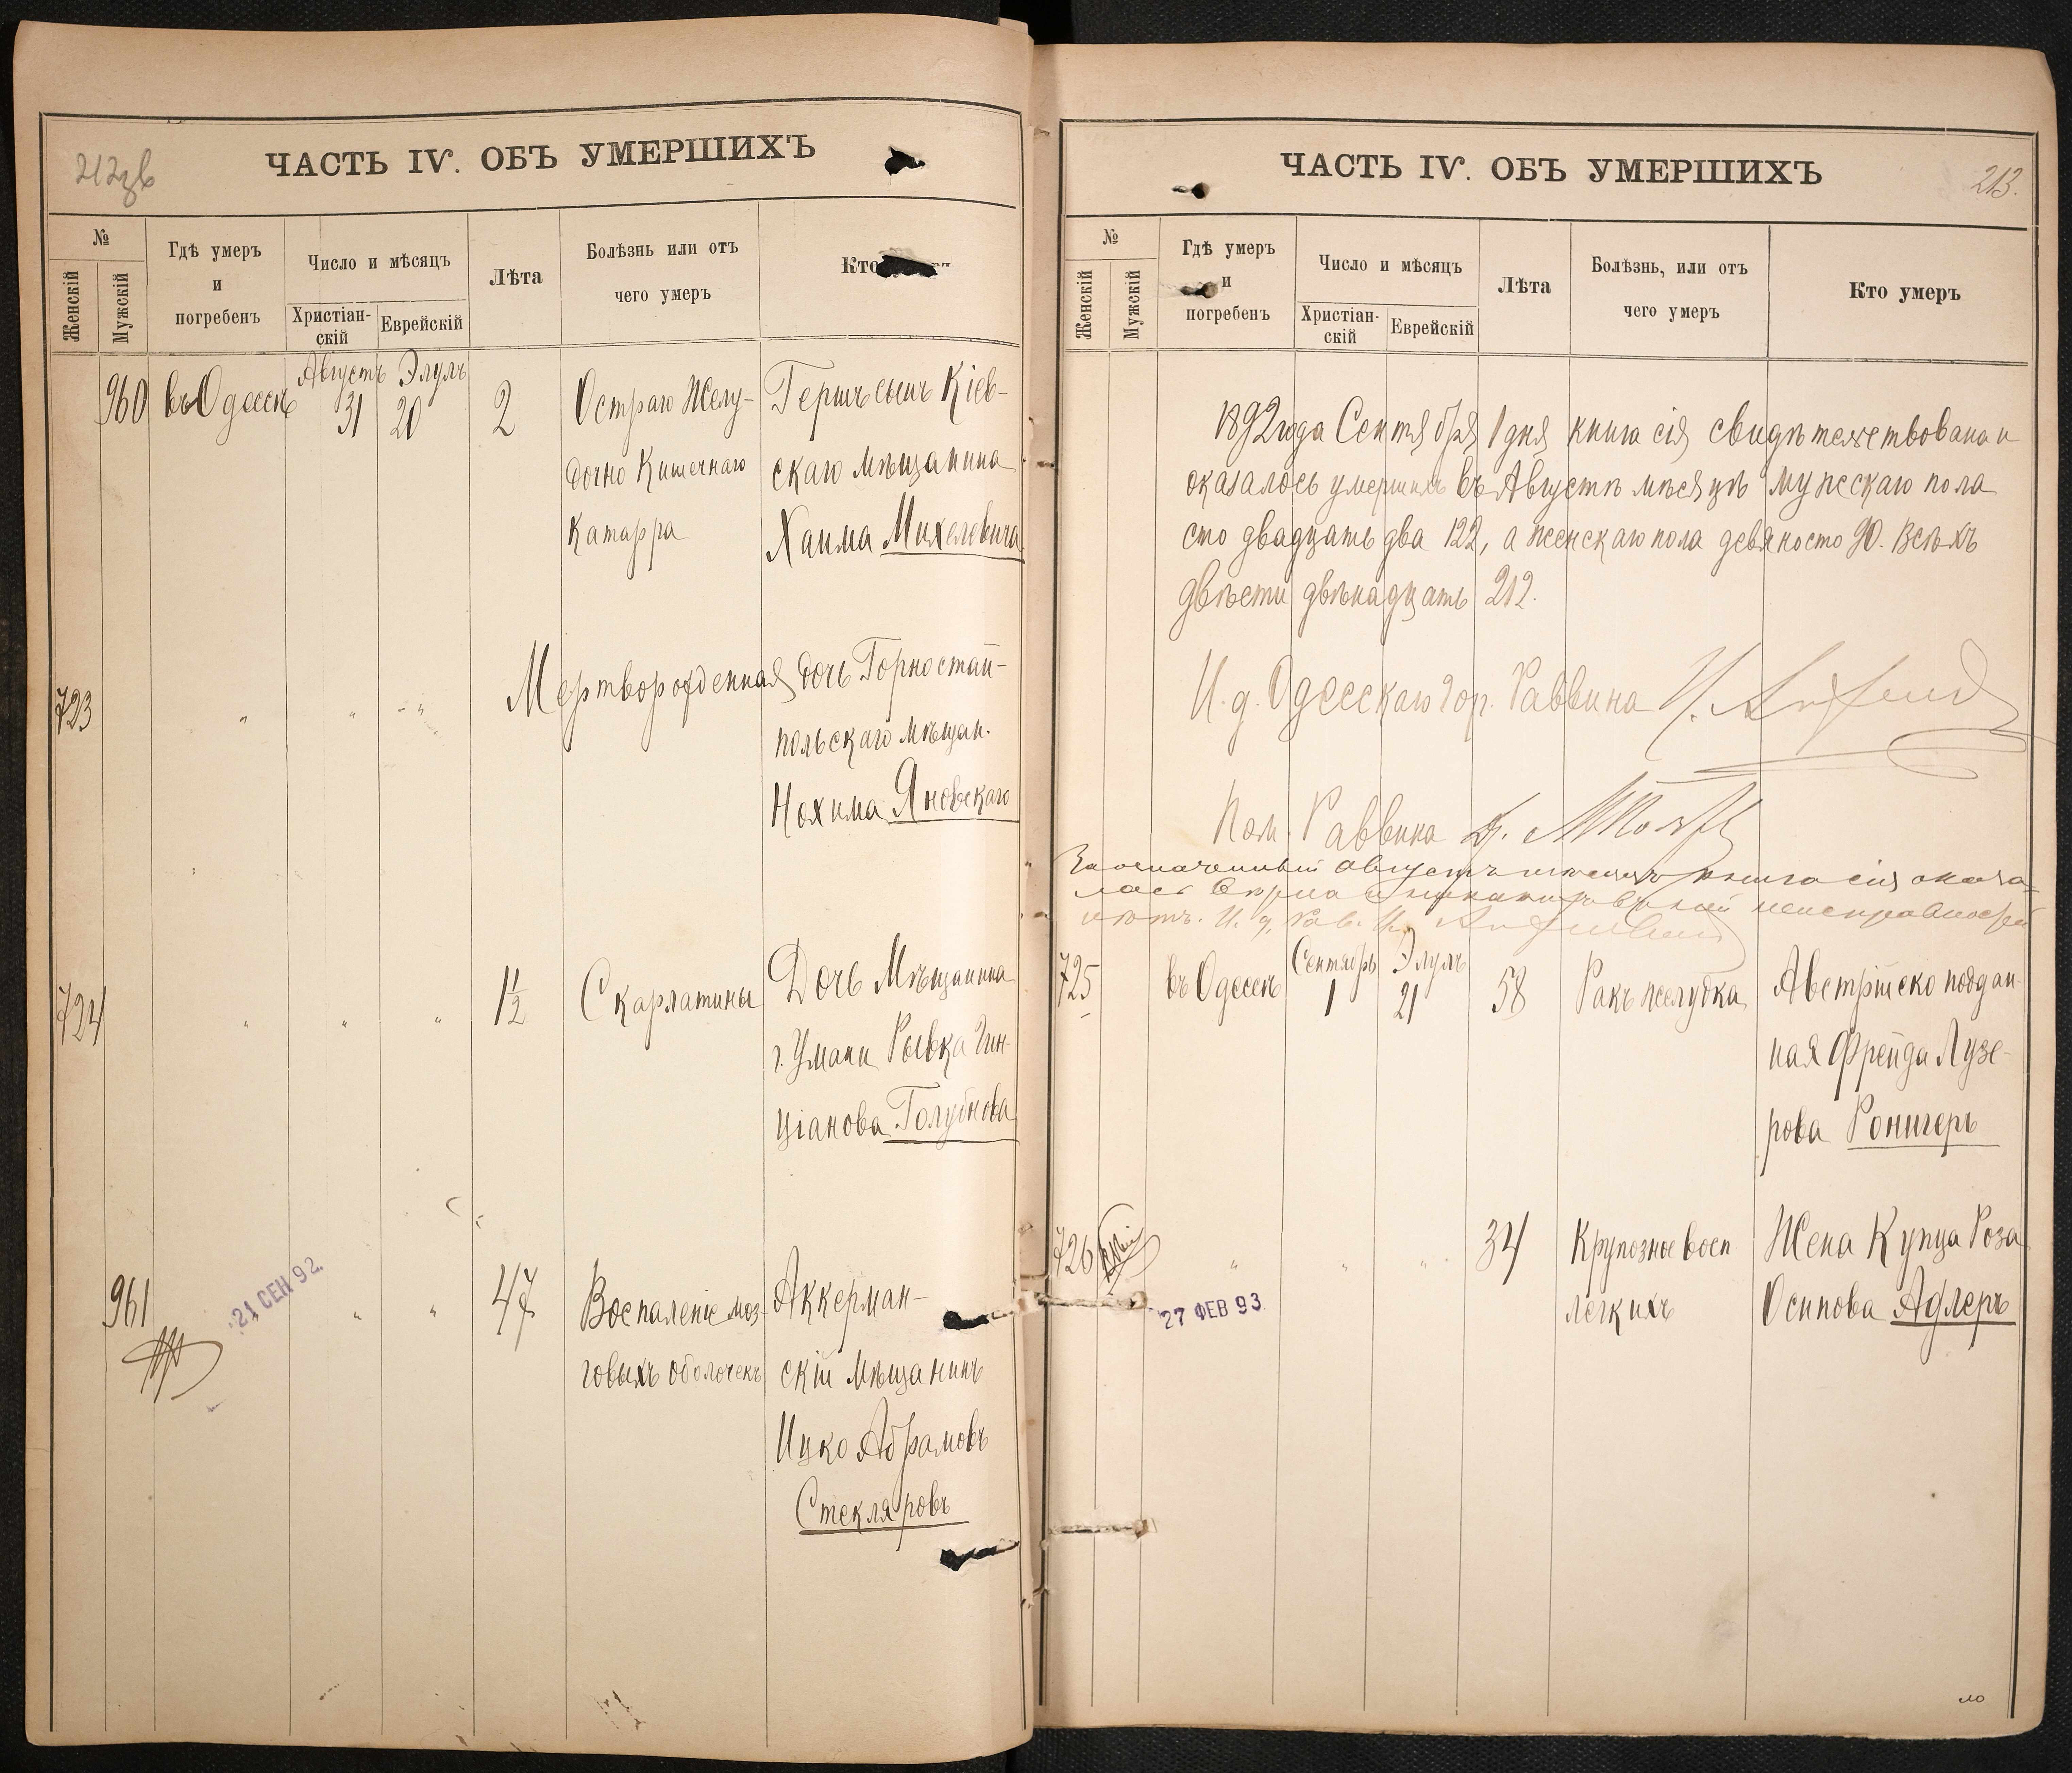 212зв
ЧАСТЬ IV. ОБЪ УМЕРШИХЪ
№
Женскій
Мужскій
Гдѣ умеръ
и
погребенъ
Число и мѣсяцъ
Христіан-
скій
Еврейскій
Лѣта
Болѣзнь или отъ
чего умеръ
Кто
960 въ Одессѣ Августъ 31 Элулъ 20 2 Остраго Желу- Гершъ сынъ Кіев-
дочно Кишечнаго скаго мѣщанина
Катарра Хаима Михелевича
723 " " " Мертворожденная дочь Горностай-
польскаго мѣщан.
Нохима Яновскаго
724 " " " 1½ Скарлатины Дочь Мѣщанина
г. Умани Рывка Гин-
ціанова Голубнова
961 21 СЕН 92. " " 47 Воспаленіе моз- Аккерман-
говыхъ оболочекъ скій мѣщанинъ
Ицко Абрамовъ
Стекляровъ
ЧАСТЬ IV. ОБЪ УМЕРШИХЪ
213.
№
Женскій
Мужскій
Гдѣ умеръ
и
погребенъ
Число и мѣсяцъ
Христіан-
скій
Еврейскій
Лѣта
Болѣзнь, или отъ
чего умеръ
Кто умеръ
1892 года Сентября 1 дня книга сія свидѣтельствована и
оказалось умершихъ въ Августѣ мѣсяцѣ мужескаго пола
сто двадцать два 122, а женскаго пола девяносто 90. Всѣхъ
двѣсти двѣнадцать 212.
И. д. Одесскаго Гор. Раввина
Пом. Раввина
За означенный августъ мѣсяцъ книга сія оказа-
лась неисправностей
нѣтъ. И. д. Рав.
725 въ Одессѣ Сентябрь 1 Элулъ 21 58 Ракъ желудка Австрійско поддан-
ная Фрейда Лузе-
рова Ронигеръ
726 " " " 34 Крупозное восп Жена Купца Роза
27 ФЕВ 93 легкихъ Осипова Адлеръ